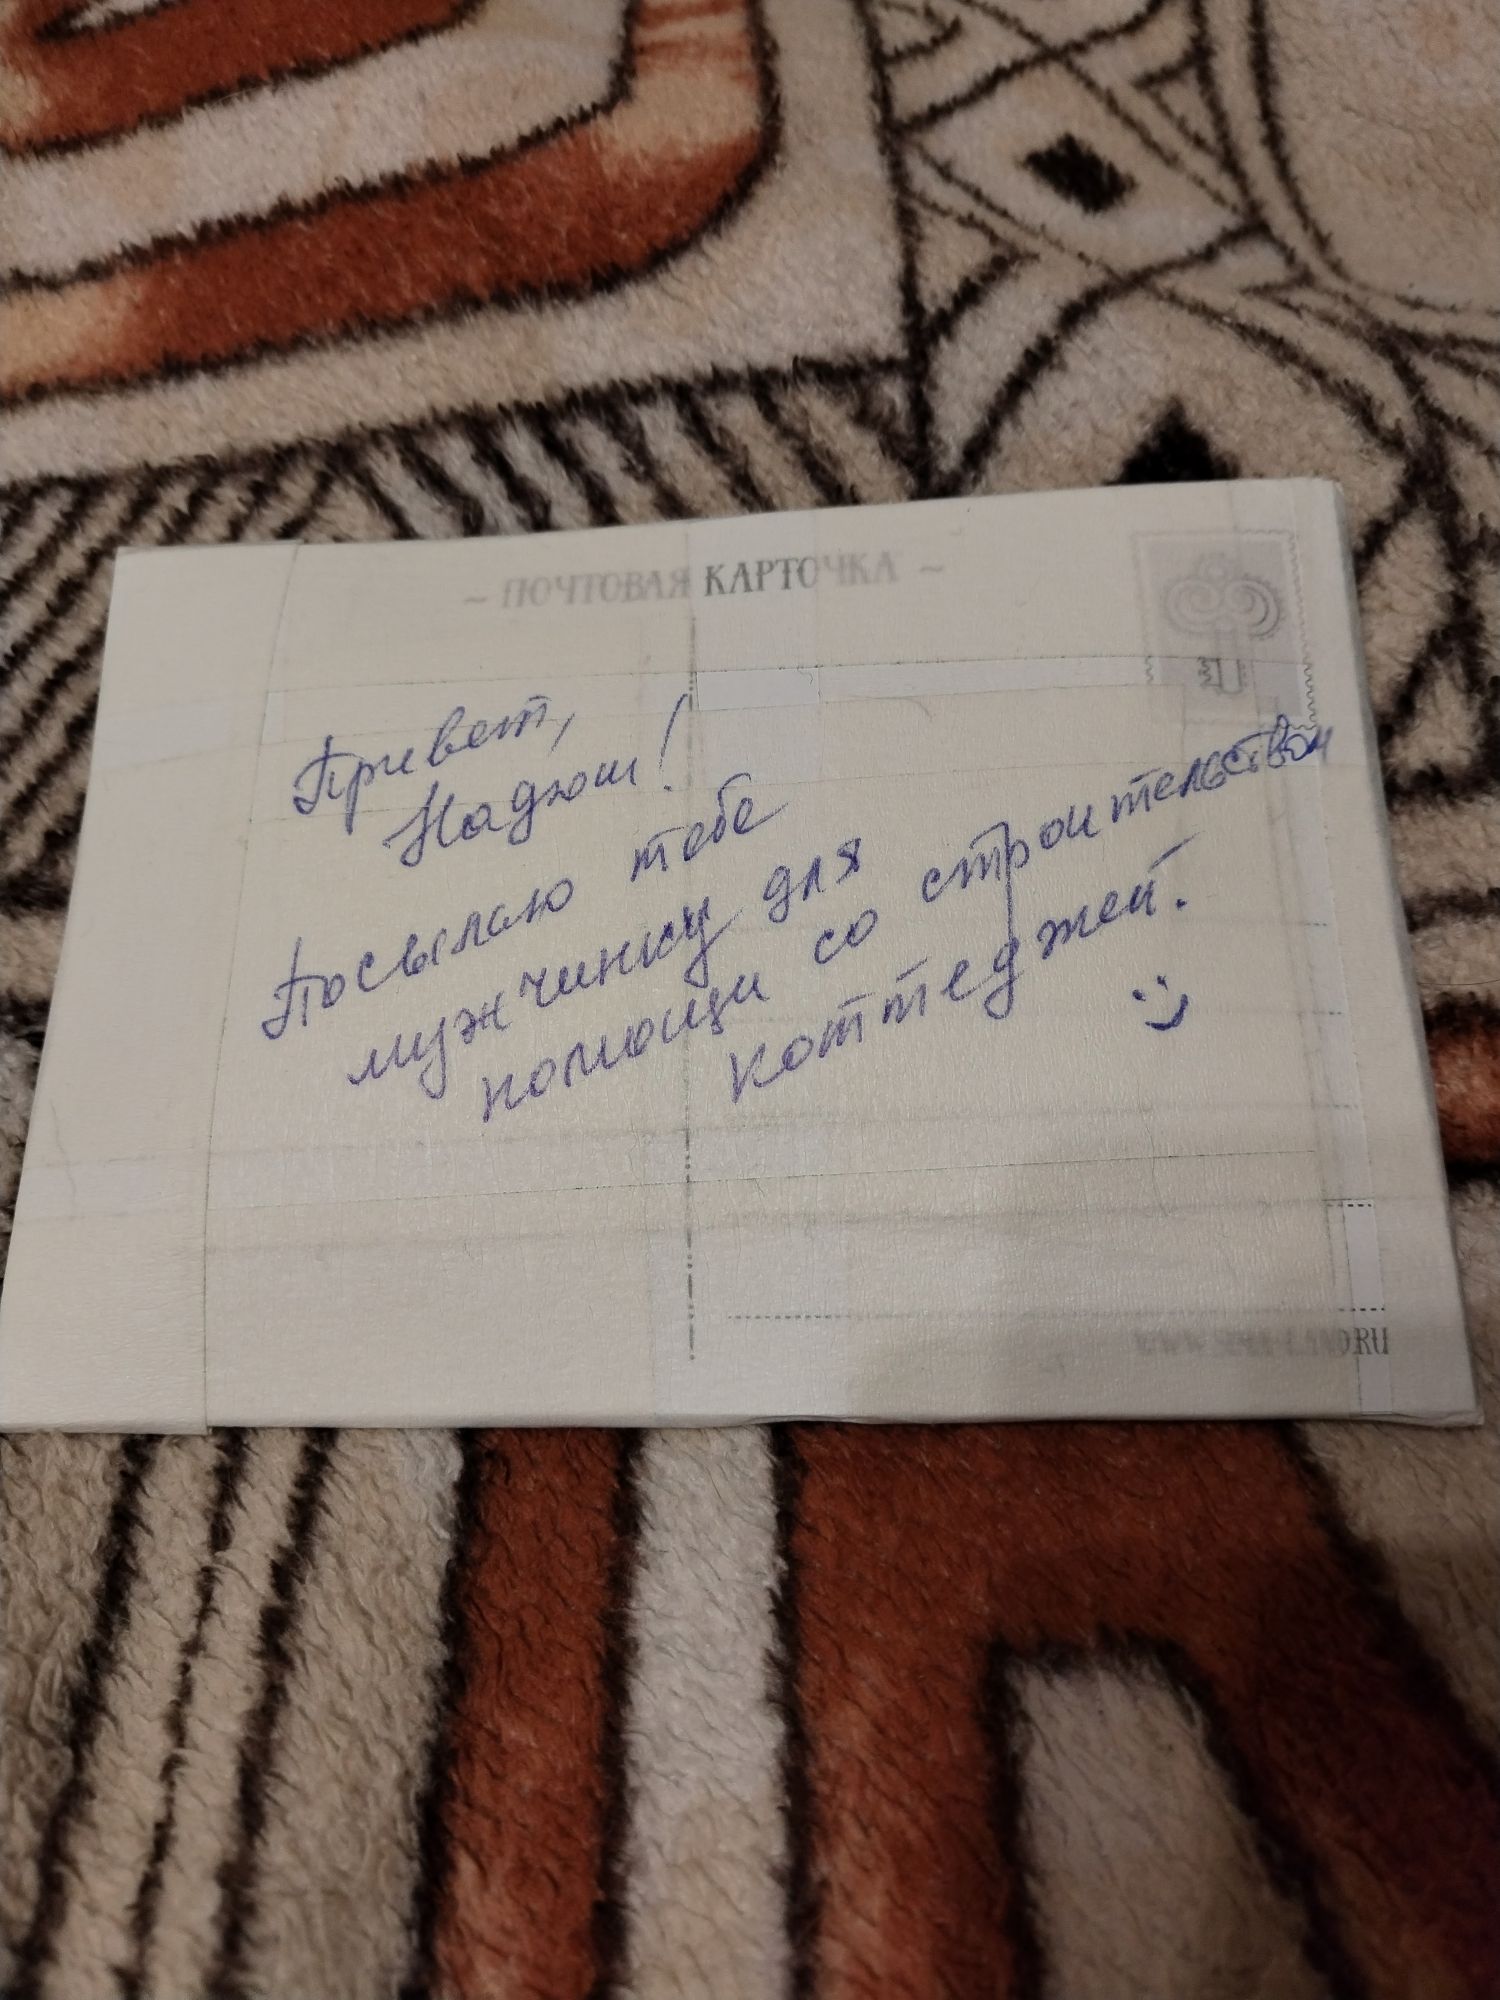 ~ ПОЧТОВАЯ КАРТОЧКА ~
Привет,
Надюш!
Посылаю тебе
мужчинку для
помощи со строительством
коттеджей.
:)
WWW.SIMA-LAND.RU